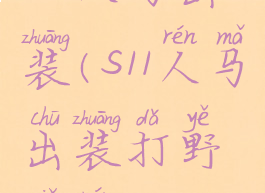 zhuāng rén mǎ
装(S11人马
chū zhuāng dǎ yě
出装打野